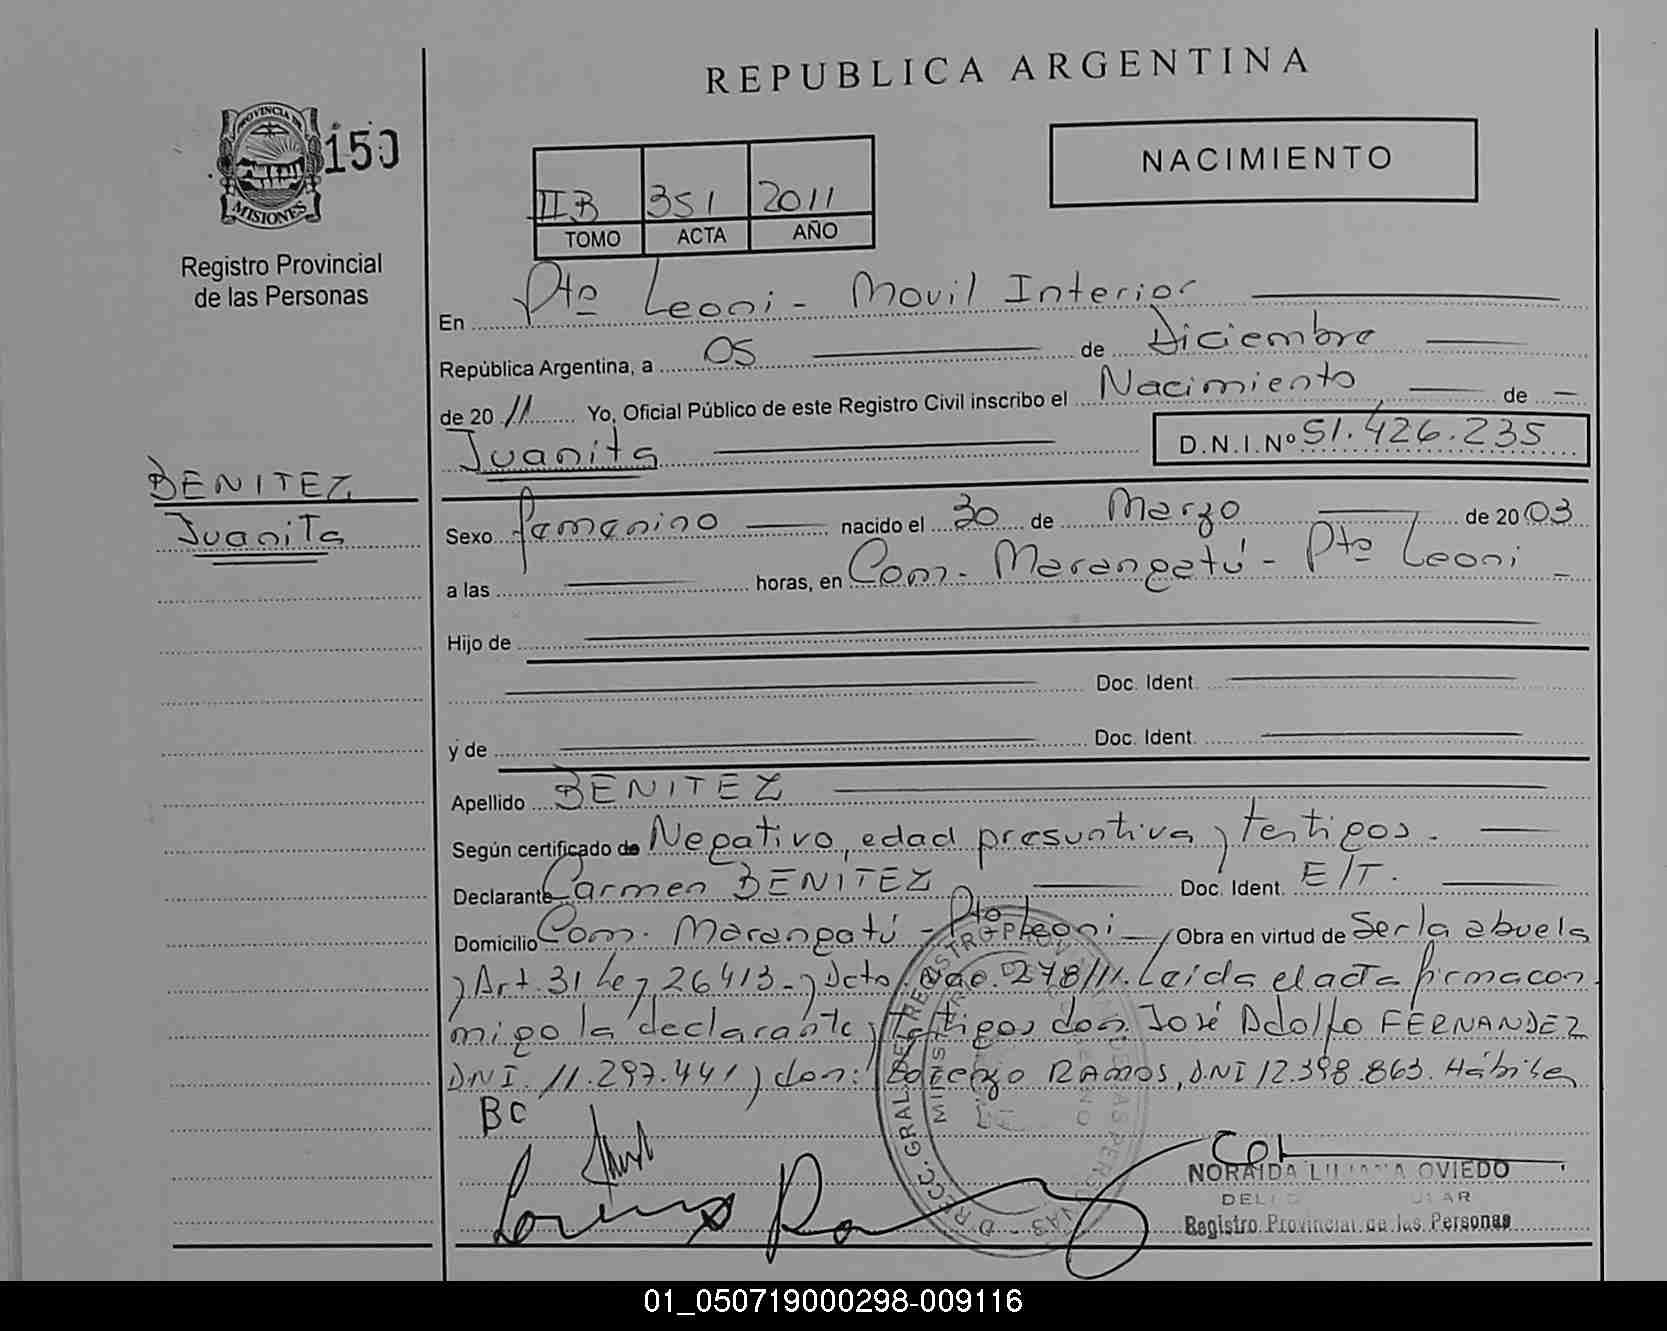 REPUBLICA ARGENTINA
PROVINCIA DE
MISIONES
150
Registro Provincial
de las Personas
NACIMIENTO
II B 351 2011
TOMO ACTA AÑO
En Pto Leoni - Movil Interior
República Argentina, a 05 de Diciembre
de 20 11 Yo, Oficial Público de este Registro Civil inscribo el Nacimiento de
Juanita D.N.I. Nº 51.426.235
BENITEZ
Juanita
Sexo femenino nacido el 30 de Marzo de 20 03
a las horas, en Com. Marangatú - Pto Leoni -
Hijo de
Doc. Ident.
y de Doc. Ident.
Apellido BENITEZ
Según certificado de Negativo, edad presuntiva y testigos.
Declarante Carmen BENITEZ Doc. Ident. E/T.
Domicilio Com. Marangatú - Pto Leoni - Obra en virtud de Ser la abuela
y Art. 31 Ley 26413 - y Dcto 278/11. Leída el acta firma con
migo la declarante y testigos don José Adolfo FERNANDEZ
DNI. 11.297.441 y don: Lorenzo RAMOS, DNI 12.398.863. Hábiles
BC
NORAIDA LILIANA OVIEDO
Registro Provincial de las Personas
01_050719000298-009116